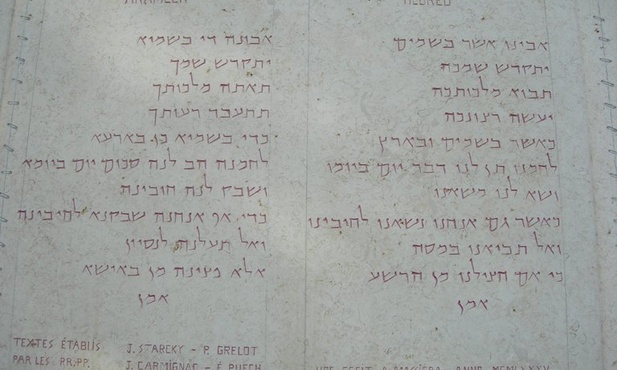 ARAMEEN
אבונה די בשמיא
יתקדש שמך
תאתה מלכותך
תתעבד רעותך
כדי בשמיא כן בארעא
לחמנה הב לנה סכום יום ביומא
ושבק לנה חובינה
כדי אף אנחנה שבקנא לחיבינה
ואל תעלנה לנסיון
אלא פצינה מן באישא
אמן
HEBREU
אבינו אשר בשמים
יתקדש שמכה
תבוא מלכותכה
יעשה רצונכה
כאשר בשמים ובארץ
לחמנו תן לנו דבר יום ביומו
ושא לנו
כאשר גם אנחנו נשאנו לחיבינו
ואל תביאנו במסה
כי אם הצילנו מן הרשע
אמן
TEXTES ÉTABLIS J. STARCKY - P. GRELOT
PAR LES RR.PP. J. CARMIGNAC - É. PUECH
ANNO MCMLXXXV